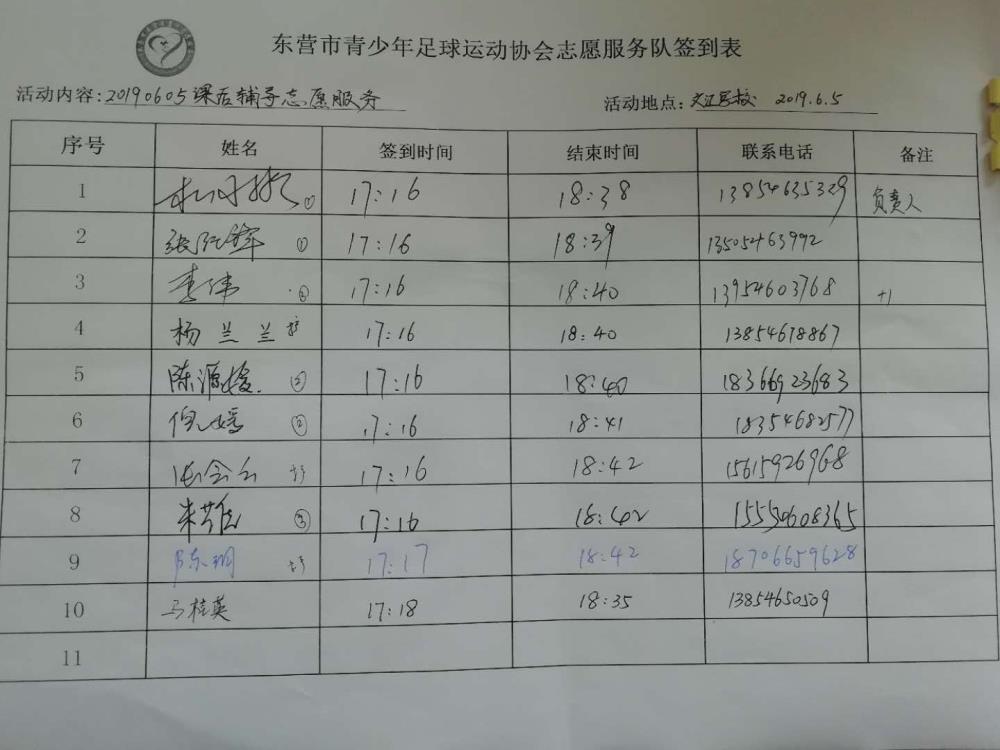 东营市青少年足球运动协会志愿服务队签到表
活动内容:20190605课后辅导志愿服务 活动地点: 2019.6.5
序号 姓名 签到时间 结束时间 联系电话 备注
1 ① 17:16 18:38 13854635329 负责人
2 ① 17:16 18:39 13505463992
3 李伟 17:16 18:40 13954603768 +1
4 杨兰兰 17:16 18:40 13854678867
5 陈源媛 ② 17:16 18:40 18366923683
6 倪嫣 ② 17:16 18:41 18354682577
7 17:16 18:42 15615926968
8 朱 ③ 17:16 18:42 15550608365
9 陈 17:17 18:42 18706659628
10 马桂英 17:18 18:35 13854650509
11